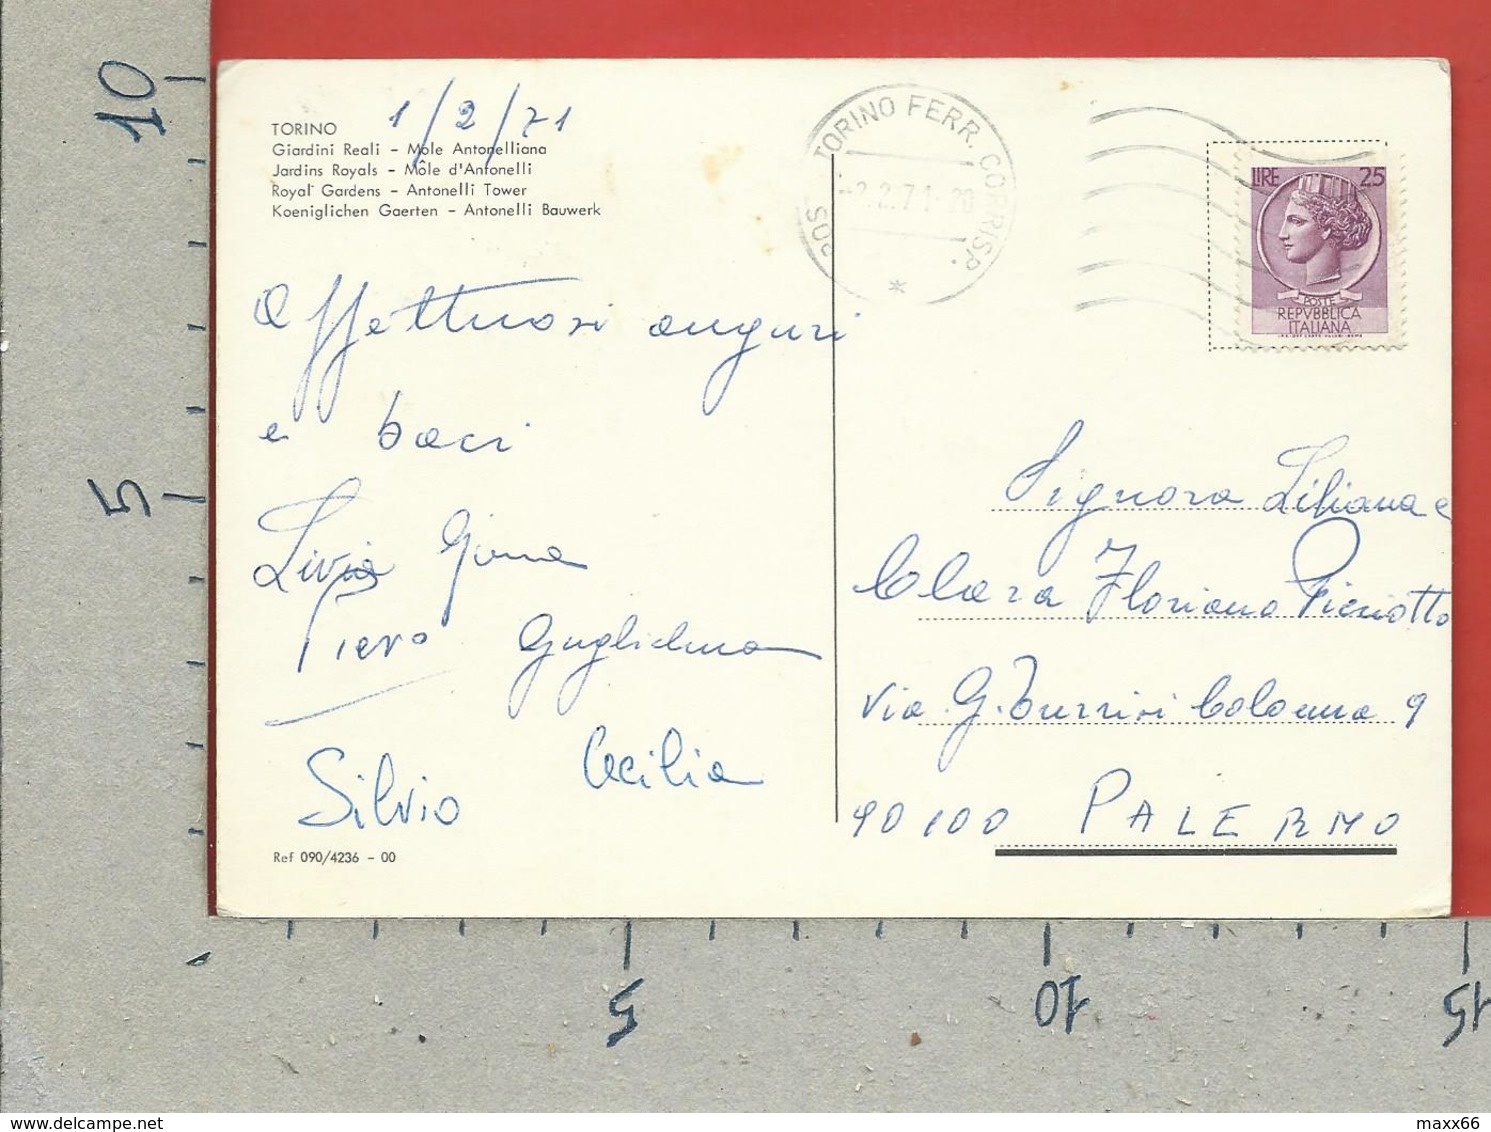 TORINO 1/2/71
Giardini Reali - Mole Antonelliana
Jardins Royals - Môle d'Antonelli
Royal Gardens - Antonelli Tower
Koeniglichen Gaerten - Antonelli Bauwerk
TORINO FERR. CORRISP.
2.2.71-20
LIRE 25
POSTE
REPVBBLICA
ITALIANA
Affettuosi auguri
e baci
Livia
Piero Guglielma
Silvio Cecilia
Ref 090/4236 - 00
Signora Liliana e
Clara Floriana
via G. Turrisi Colonna 9
90100 PALERMO
10
5
5
10
15
maxx66